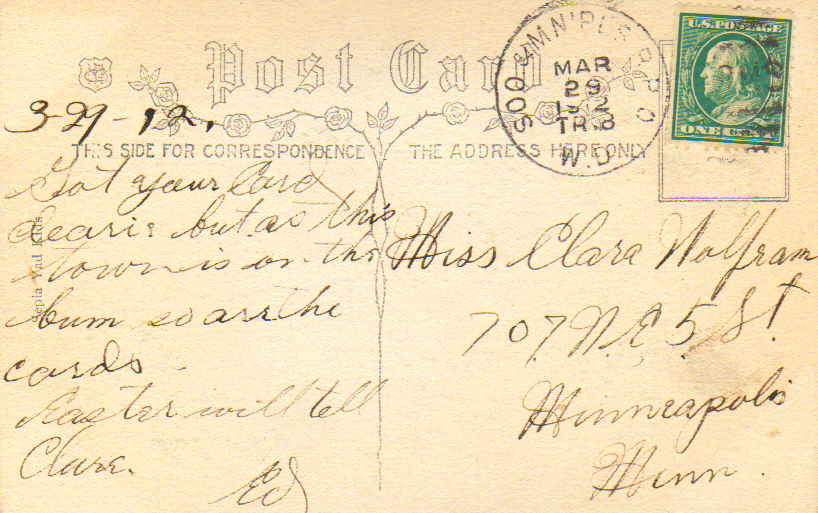 Post Card
3-29-12.
THIS SIDE FOR CORRESPONDENCE
THE ADDRESS HERE ONLY
Got your Card
Dearie but as this
town is on the
bum so are the
cards
Easter will tell
Clare.
Ed
Miss Clara Wolfram
707 N.E. 5 St
Minneapolis
Minn.
MAR
29
1912
TR.8
W.D
R.P.O
U.S. POSTAGE
ONE